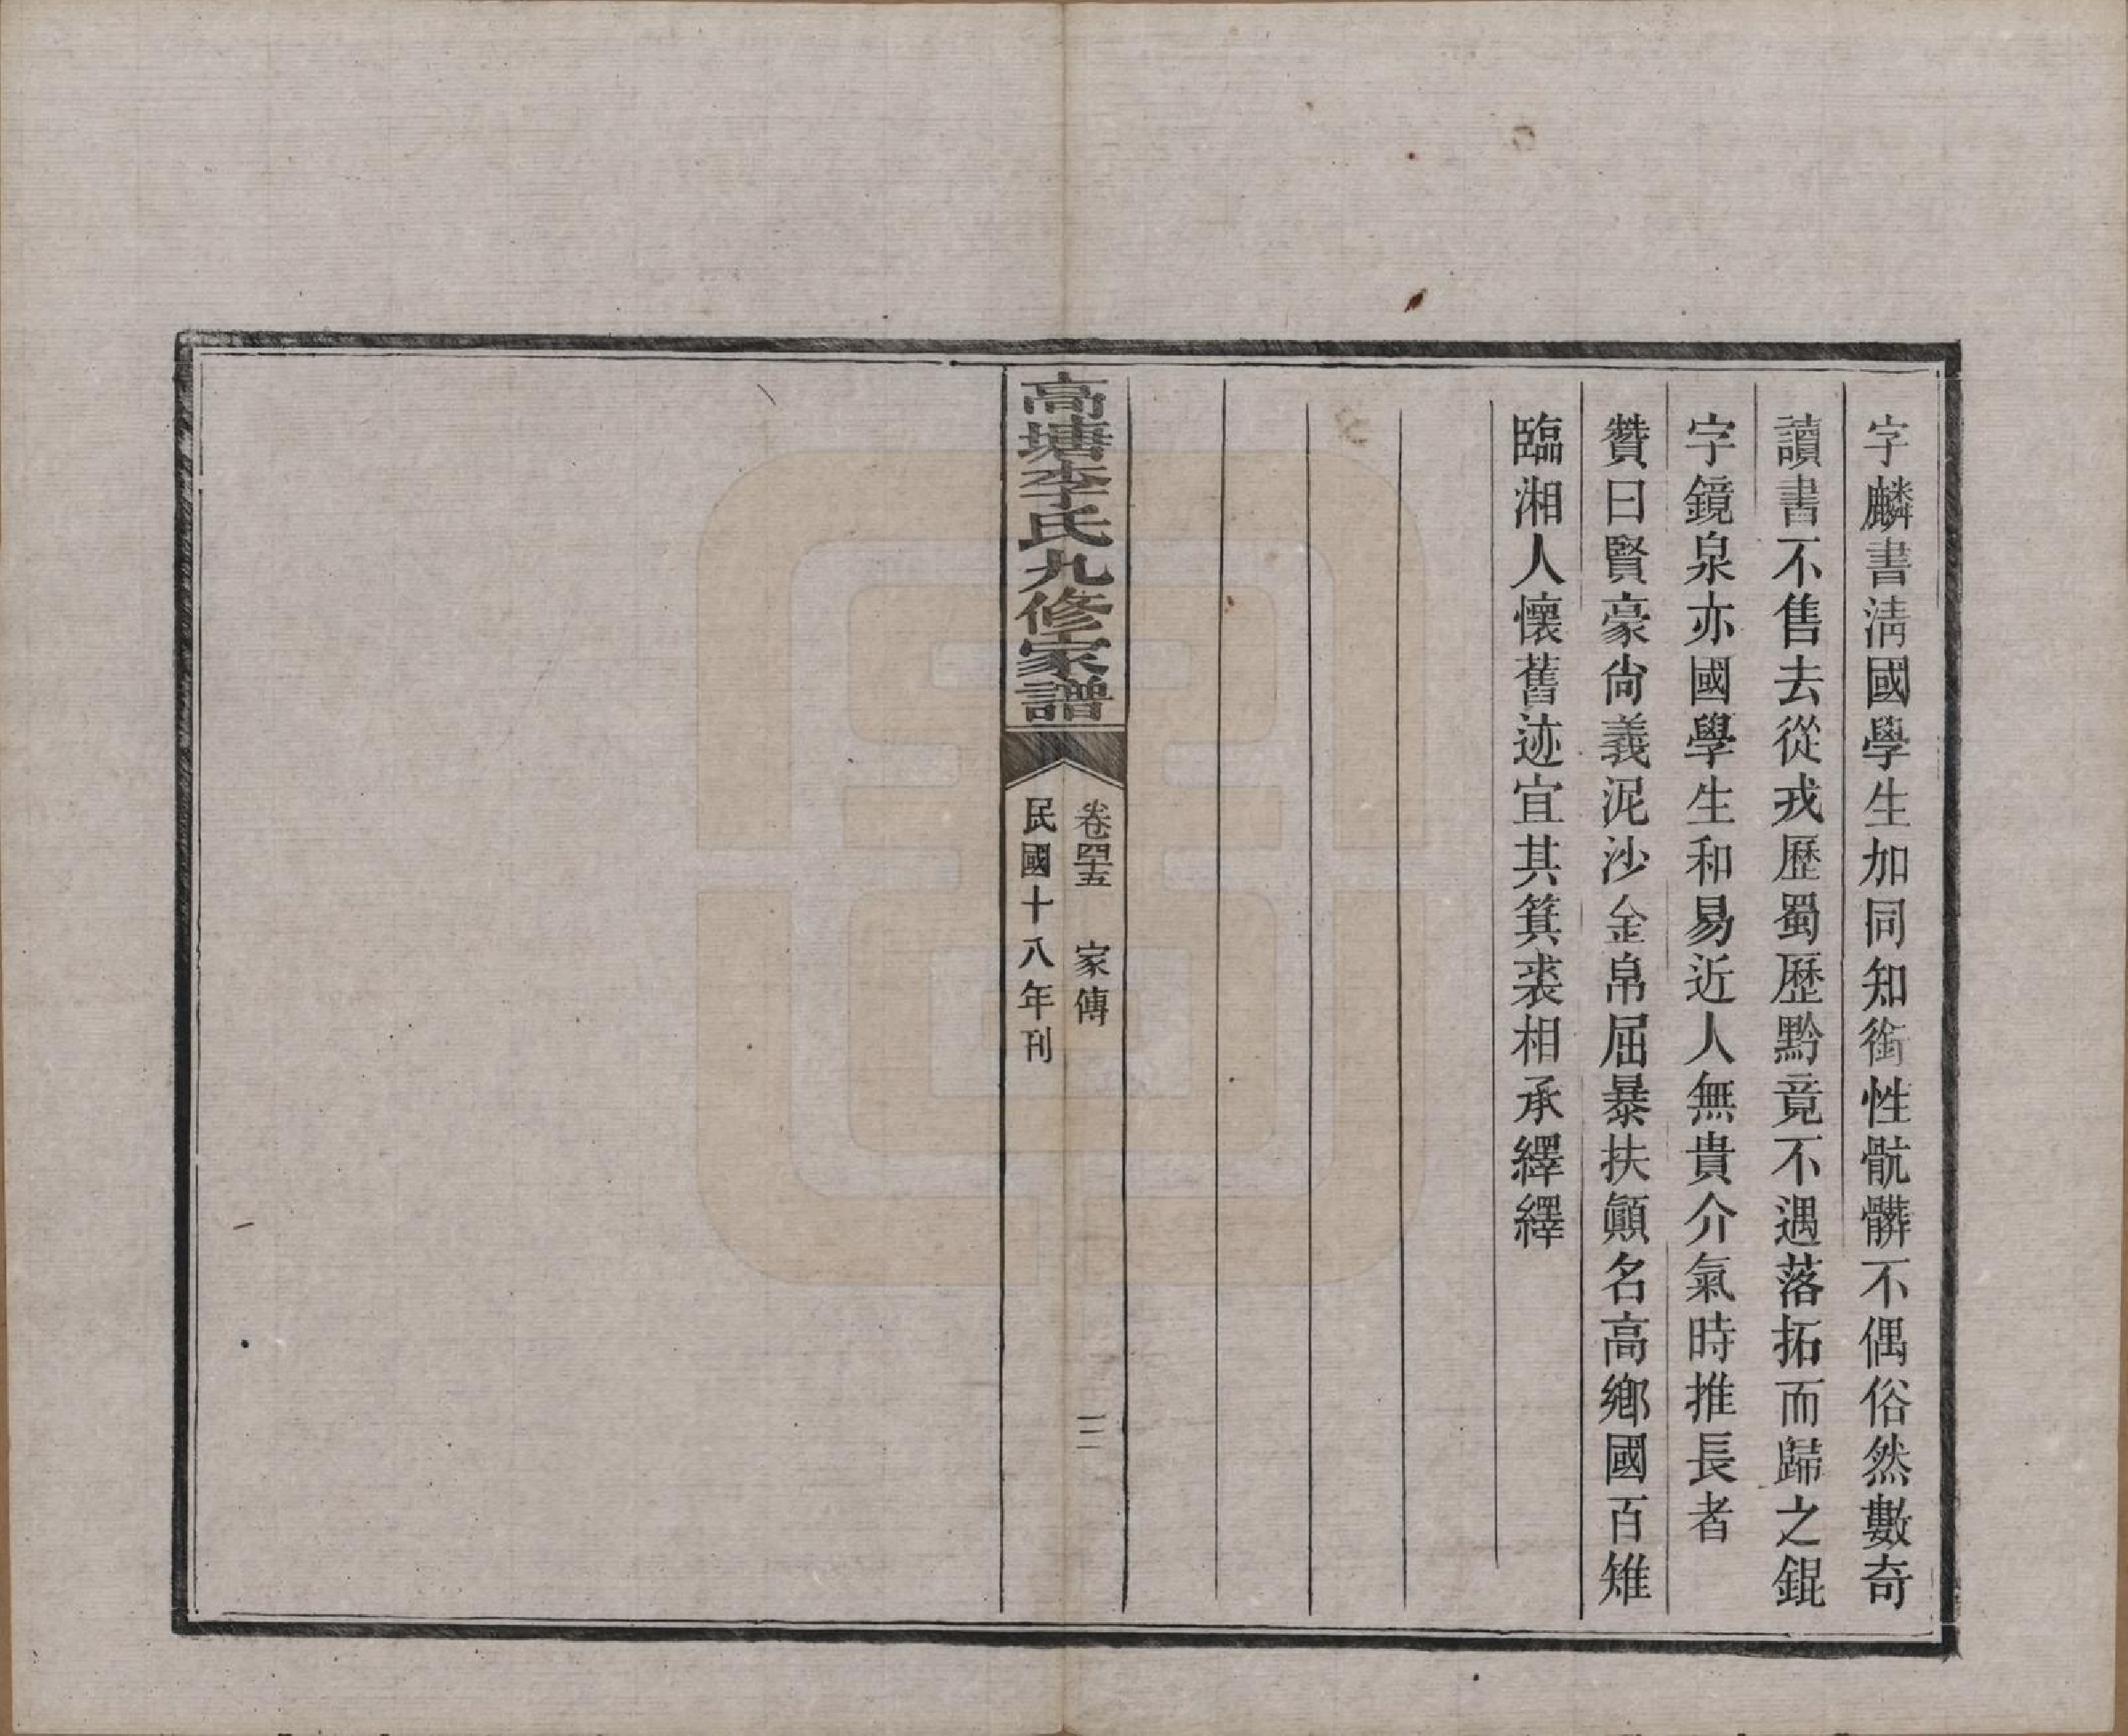 字麟書淸國學生加同知銜性骯髒不偶俗然數奇
讀書不售去從戎歷蜀歷黔竟不遇落拓而歸之錕
字鏡泉亦國學生和易近人無貴介氣時推長者
贊曰賢豪尙義泥沙金帛屈暴扶顚名高鄉國百雉
臨湘人懷舊迹宜其箕裘相承繹繹
高塘李氏九修家譜
卷四十五 家傳
三
民國十八年刊